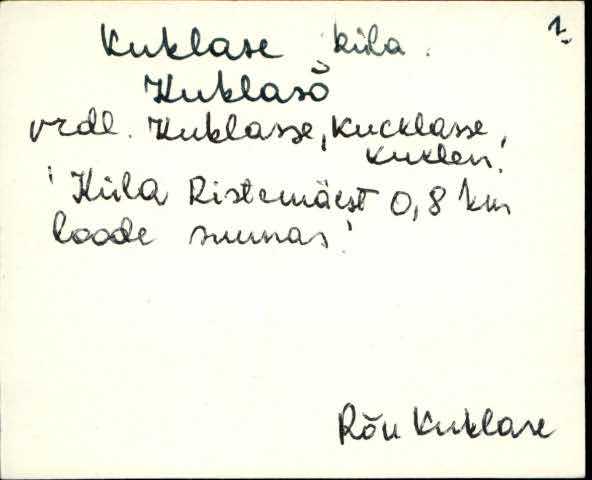 Kuklase küla. 1.
Kuklasõ
vrdl. Kuklasse, Kucklasse,
Kuklen.
'Küla Ristemäest 0,8 km
loode suunas.'
Rõu Kuklase